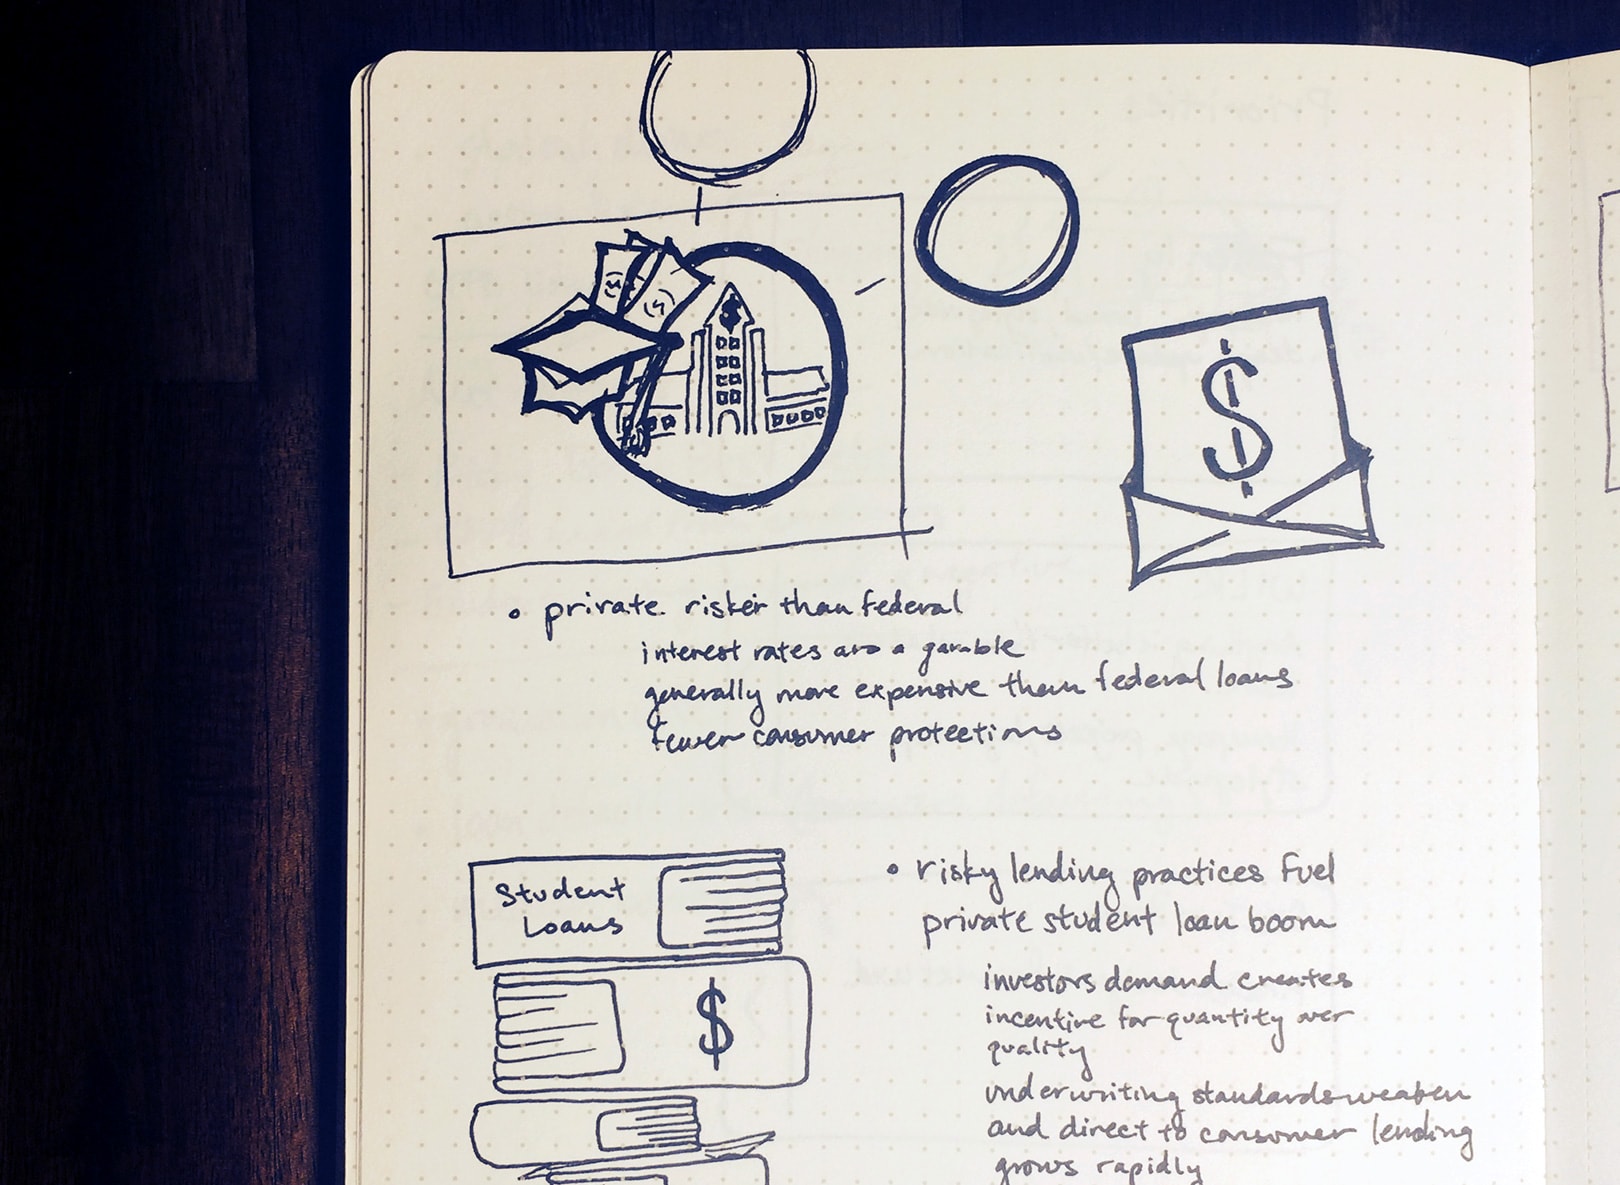 $
$
• private riskier than federal
interest rates are a gamble
generally more expensive than federal loans
fewer consumer protections
Student
Loans
$
• risky lending practices fuel
private student loan boom
investors demand creates
incentive for quantity over
quality
underwriting standards weaken
and direct to consumer lending
grows rapidly